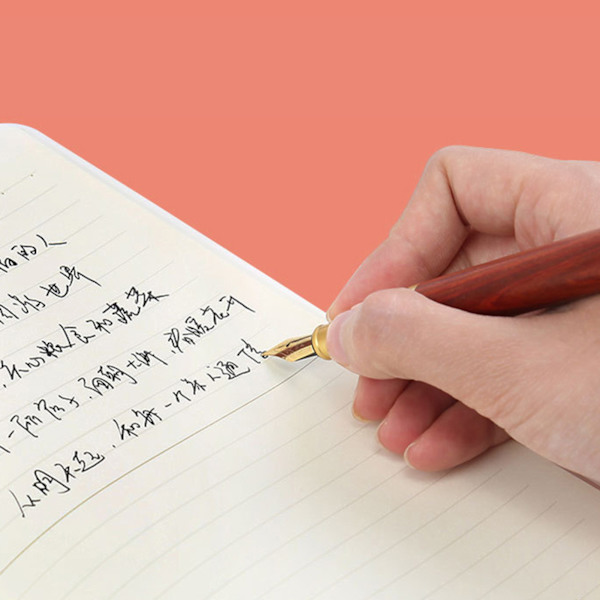 的人
世界
关心粮食和蔬菜
一所房子,面朝大海,春暖花开
从明天起,和每一个亲人通信